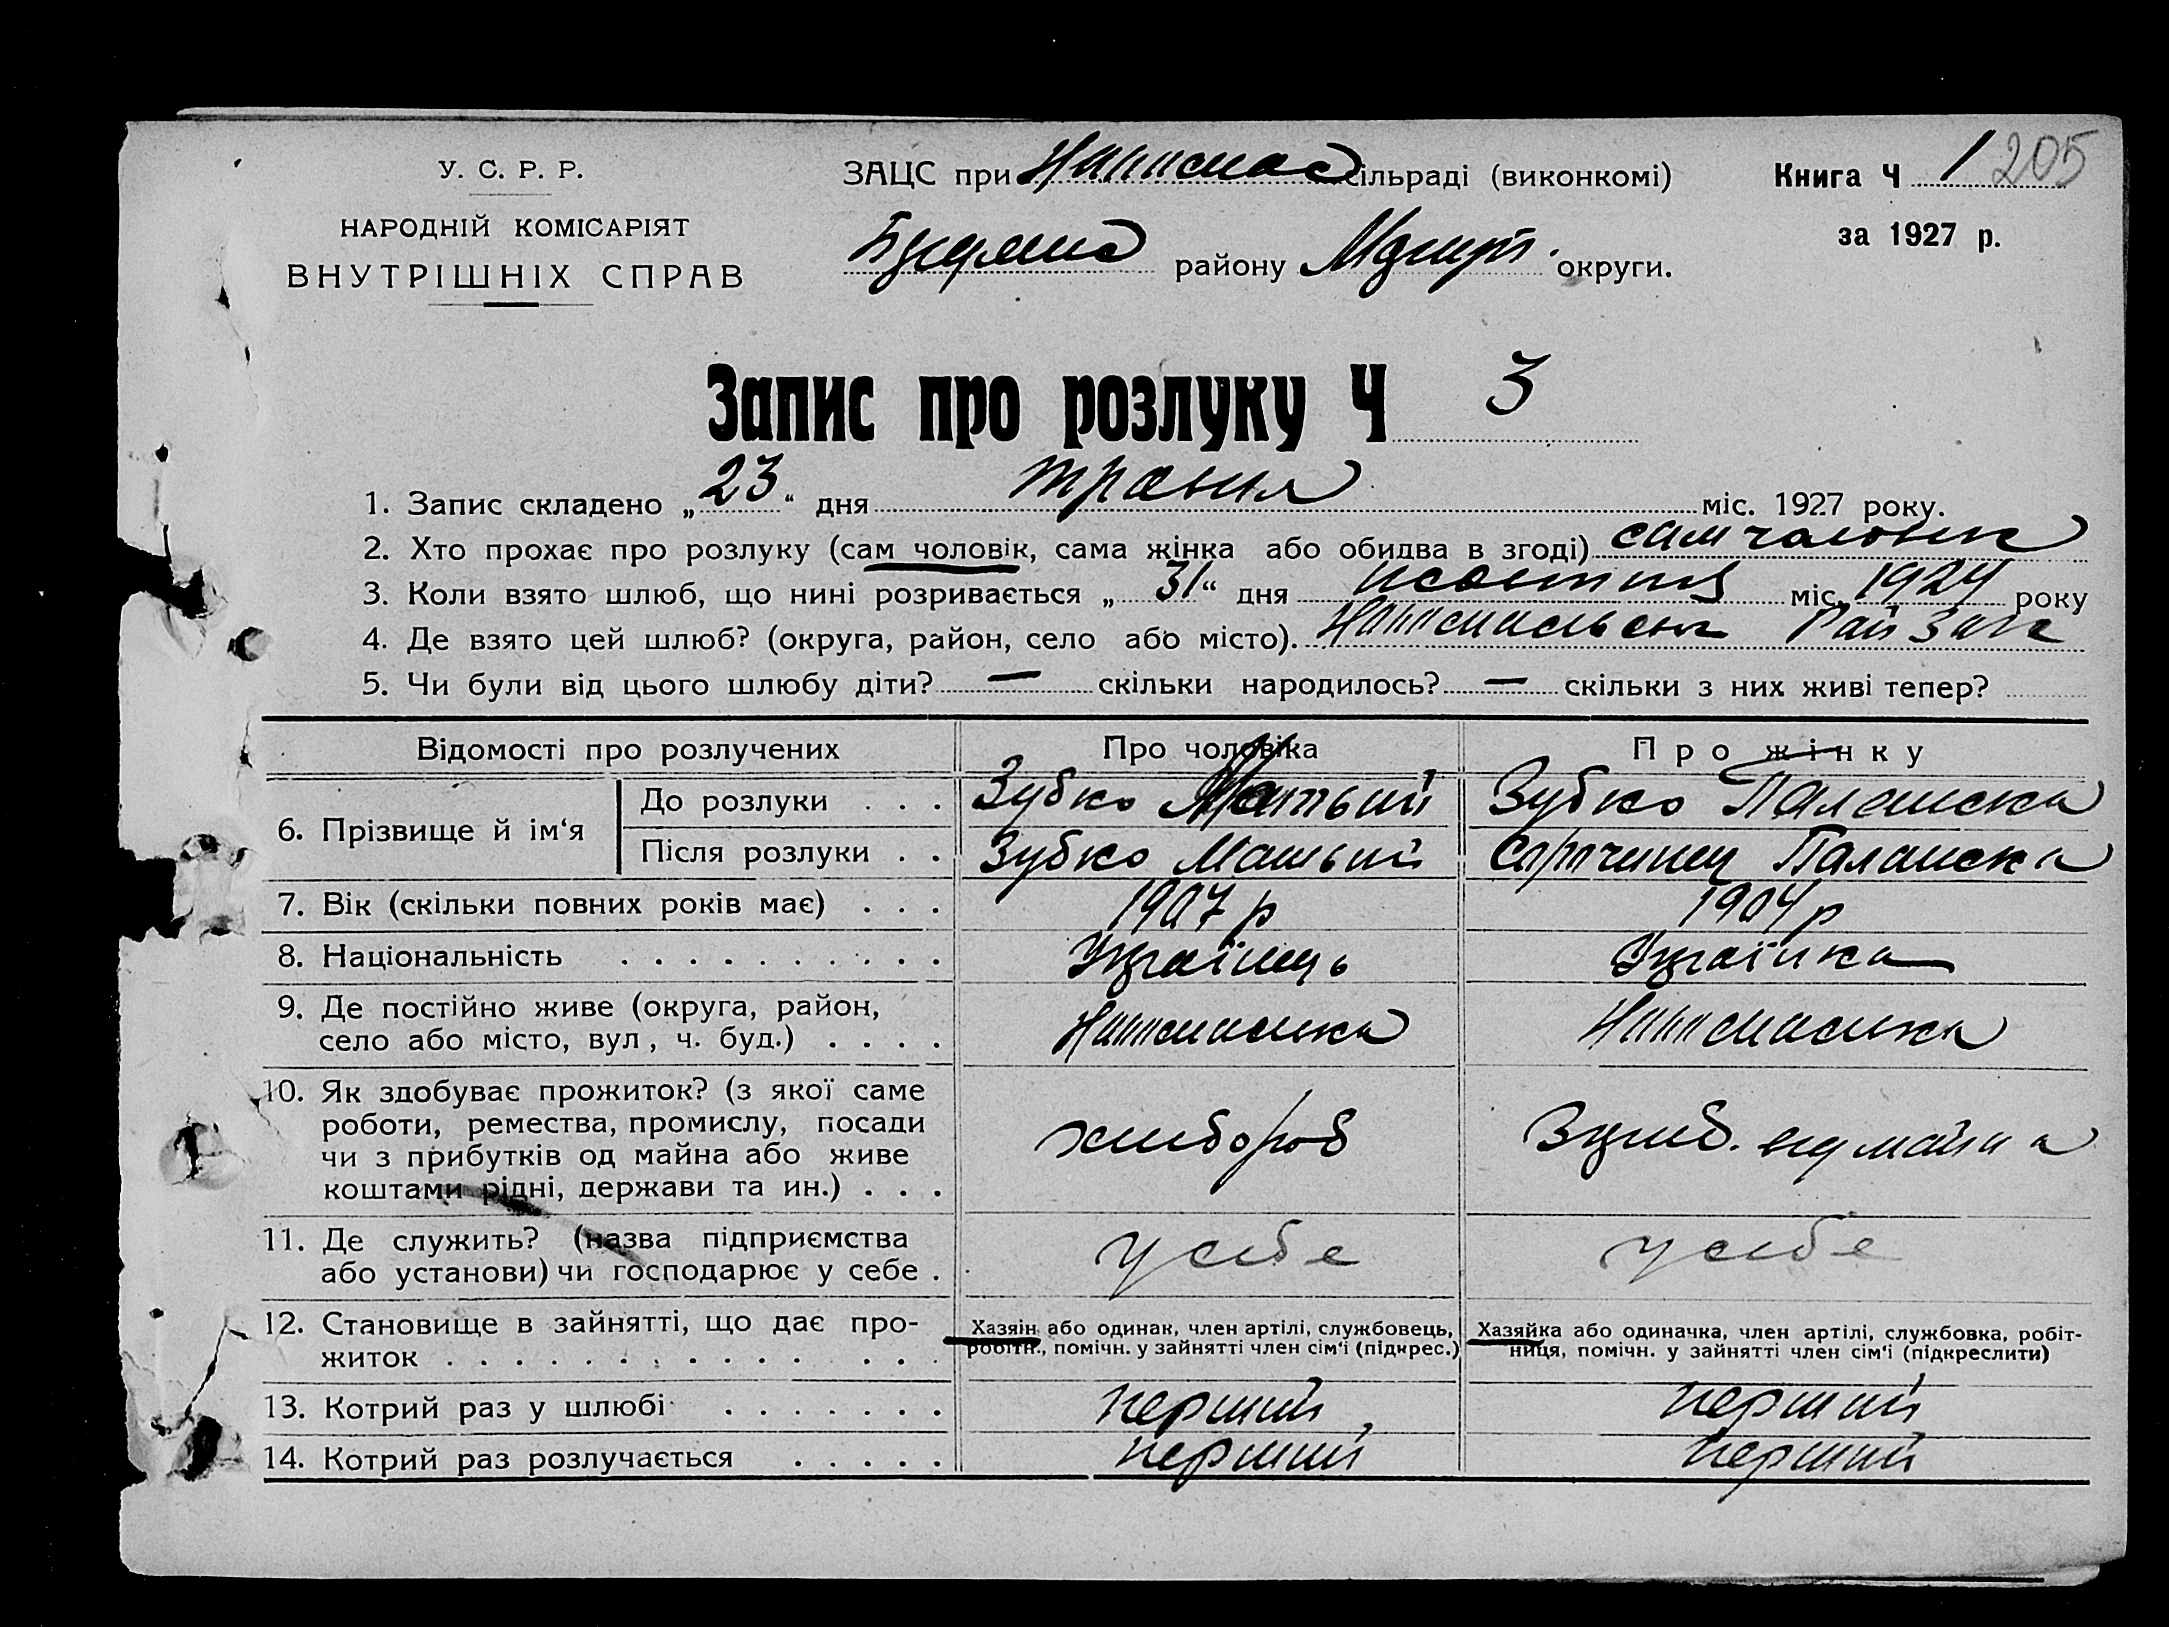 У. С. Р. Р.
НАРОДНІЙ КОМІСАРІЯТ
ВНУТРІШНІХ СПРАВ
ЗАЦС при сільраді (виконкомі)
району округи.
Книга Ч 1 205
за 1927 р.
Запис про розлуку Ч 3
1. Запис складено „ 23 “ дня травня міс. 1927 року.
2. Хто прохає про розлуку (сам чоловік, сама жінка або обидва в згоді) сам чоловік
3. Коли взято шлюб, що нині розривається „ 31 “ дня міс. 1924 року
4. Де взято цей шлюб? (округа, район, село або місто).
5. Чи були від цього шлюбу діти? — скільки народилось? — скільки з них живі тепер?
Відомості про розлучених Про чоловіка Про жінку
6. Прізвище й ім‘я До розлуки . . . Зубко Матвій Зубко Палажка
Після розлуки . . Зубко Матвій Палажка
7. Вік (скільки повних років має) . . . 1907 р 1904 р
8. Національність . . . . . . . . . . Українець Українка
9. Де постійно живе (округа, район,
село або місто, вул , ч. буд.) . . . .
10. Як здобуває прожиток? (з якої саме
роботи, ремества, промислу, посади
чи з прибутків од майна або живе
коштами рідні, держави та ин.) . . .
хлібороб
майна
11. Де служить? (назва підприємства
або установи) чи господарює у себе .
у себе у себе
12. Становище в зайнятті, що дає про-
житок . . . . . . . . . . . . .
Хазяїн або одинак, член артілі, службовець,
робітн., помічн. у зайнятті член сім‘ї (підкрес.)
Хазяйка або одиначка, член артілі, службовка, робіт-
ниця, помічн. у зайнятті член сім‘ї (підкреслити)
13. Котрий раз у шлюбі . . . . . . . перший перший
14. Котрий раз розлучається . . . . . перший перший